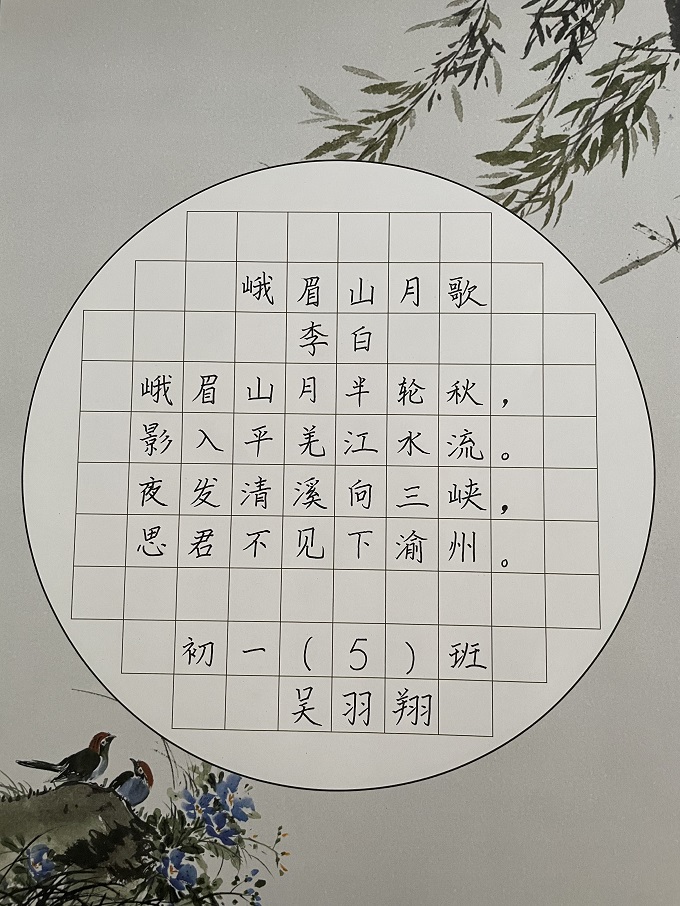 峨眉山月歌
李白
峨眉山月半轮秋，
影入平羌江水流。
夜发清溪向三峡，
思君不见下渝州。
初一(5)班
吴羽翔